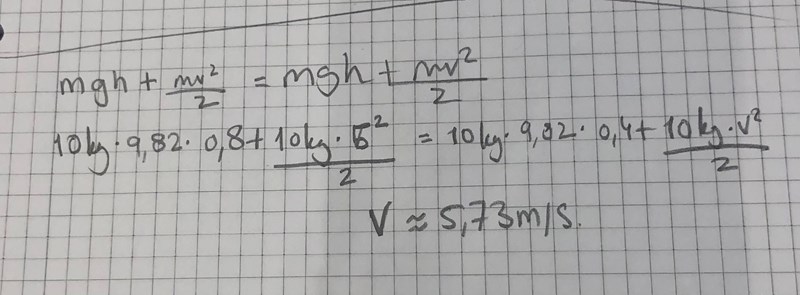 mgh + mv²/2 = mgh + mv²/2
10kg · 9,82 · 0,8 + 10kg · 5²/2 = 10kg · 9,82 · 0,4 + 10kg · v²/2
V ≈ 5,73 m/s.